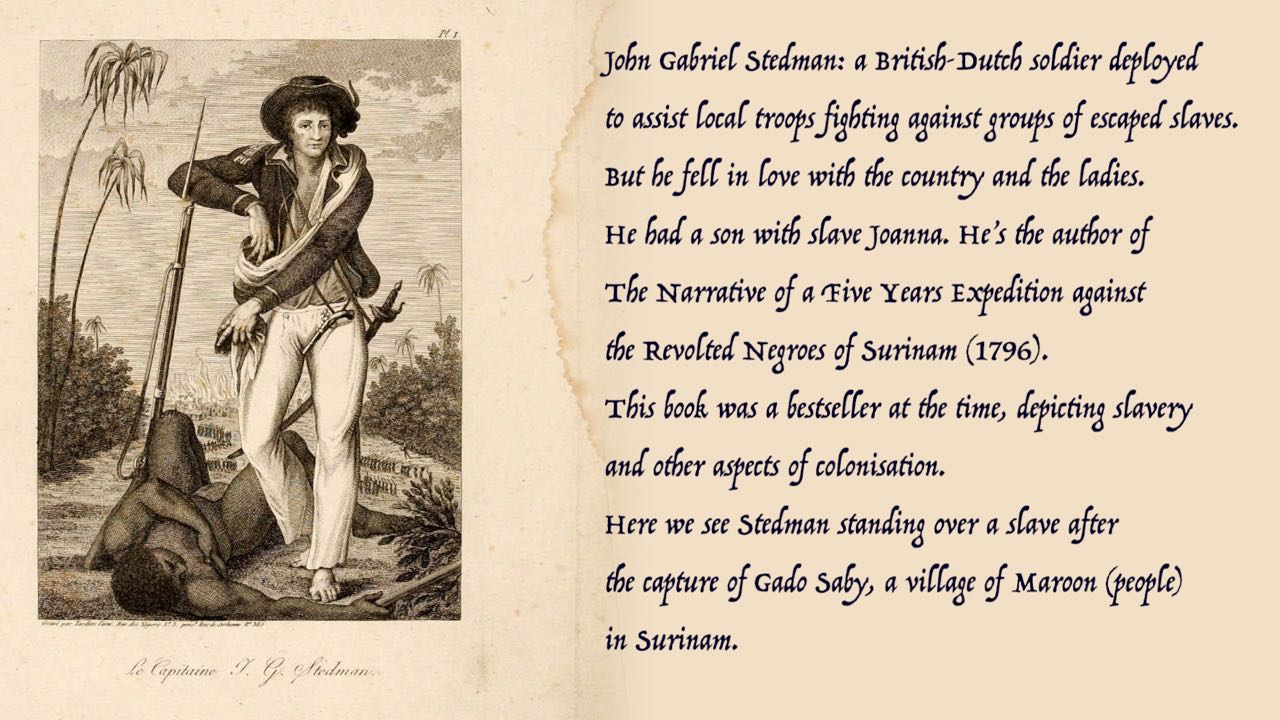 Pl. 1.
Le Capitaine J. G. Stedman.
John Gabriel Stedman: a British-Dutch soldier deployed
to assist local troops fighting against groups of escaped slaves.
But he fell in love with the country and the ladies.
He had a son with slave Joanna. He's the author of
The Narrative of a Five Years Expedition against
the Revolted Negroes of Surinam (1796).
This book was a bestseller at the time, depicting slavery
and other aspects of colonisation.
Here we see Stedman standing over a slave after
the capture of Gado Saby, a village of Maroon (people)
in Surinam.